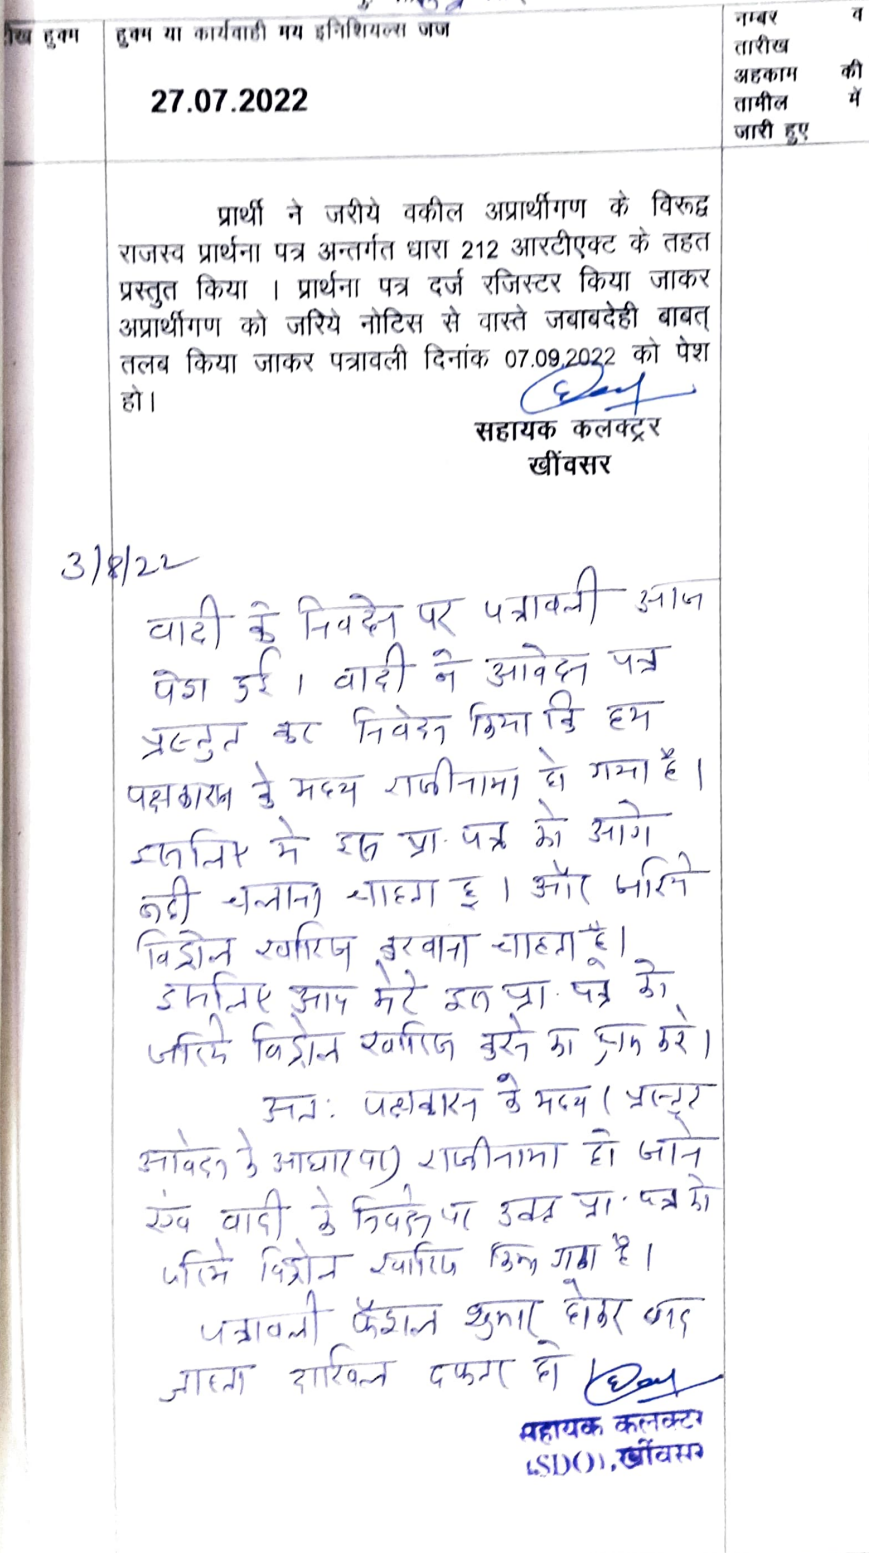 तारीख हुक्म
हुक्म या कार्यवाही मय इनिशियल्स जज
नम्बर व
तारीख
अहकाम की
तामील में
जारी हुए
27.07.2022
प्रार्थी ने जरीये वकील अप्रार्थीगण के विरूद्व
राजस्व प्रार्थना पत्र अन्तर्गत धारा 212 आरटीएक्ट के तहत
प्रस्तुत किया । प्रार्थना पत्र दर्ज रजिस्टर किया जाकर
अप्रार्थीगण को जरिये नोटिस से वास्ते जबाबदेही बाबत्
तलब किया जाकर पत्रावली दिनांक 07.09.2022 को पेश
हो।
सहायक कलक्ट्रर
खींवसर
3/8/22
वादी के निवदेन पर पत्रावली आज
पेश हुई । वादी ने आवेदन पत्र
प्रस्तुत कर निवेदन किया कि हम
पक्षकारान के मध्य राजीनामा हो गया है ।
इसलिए मे इस प्रा. पत्र को आगे
नही चलाना चाहता हु । और जरिये
विड्रोल खारिज करवाना चाहता है।
इसलिए आप मेरे इस प्रा. पत्र को
जरिये विड्रोल खारिज करने का श्रम करे।
अतः पक्षकारान के मध्य ( प्रस्तुत
आवेदन के आधार पर) राजीनामा हो जाने
एंव वादी के निवदेन पर उक्त प्रा. पत्र को
जरिये विड्रोल खारिज किया गया है ।
पत्रावली फैशल शुमार होकर बाद
जाब्ता दाखिल दफ्तर हो ।
सहायक कलक्टर
(SDO), खींवसर